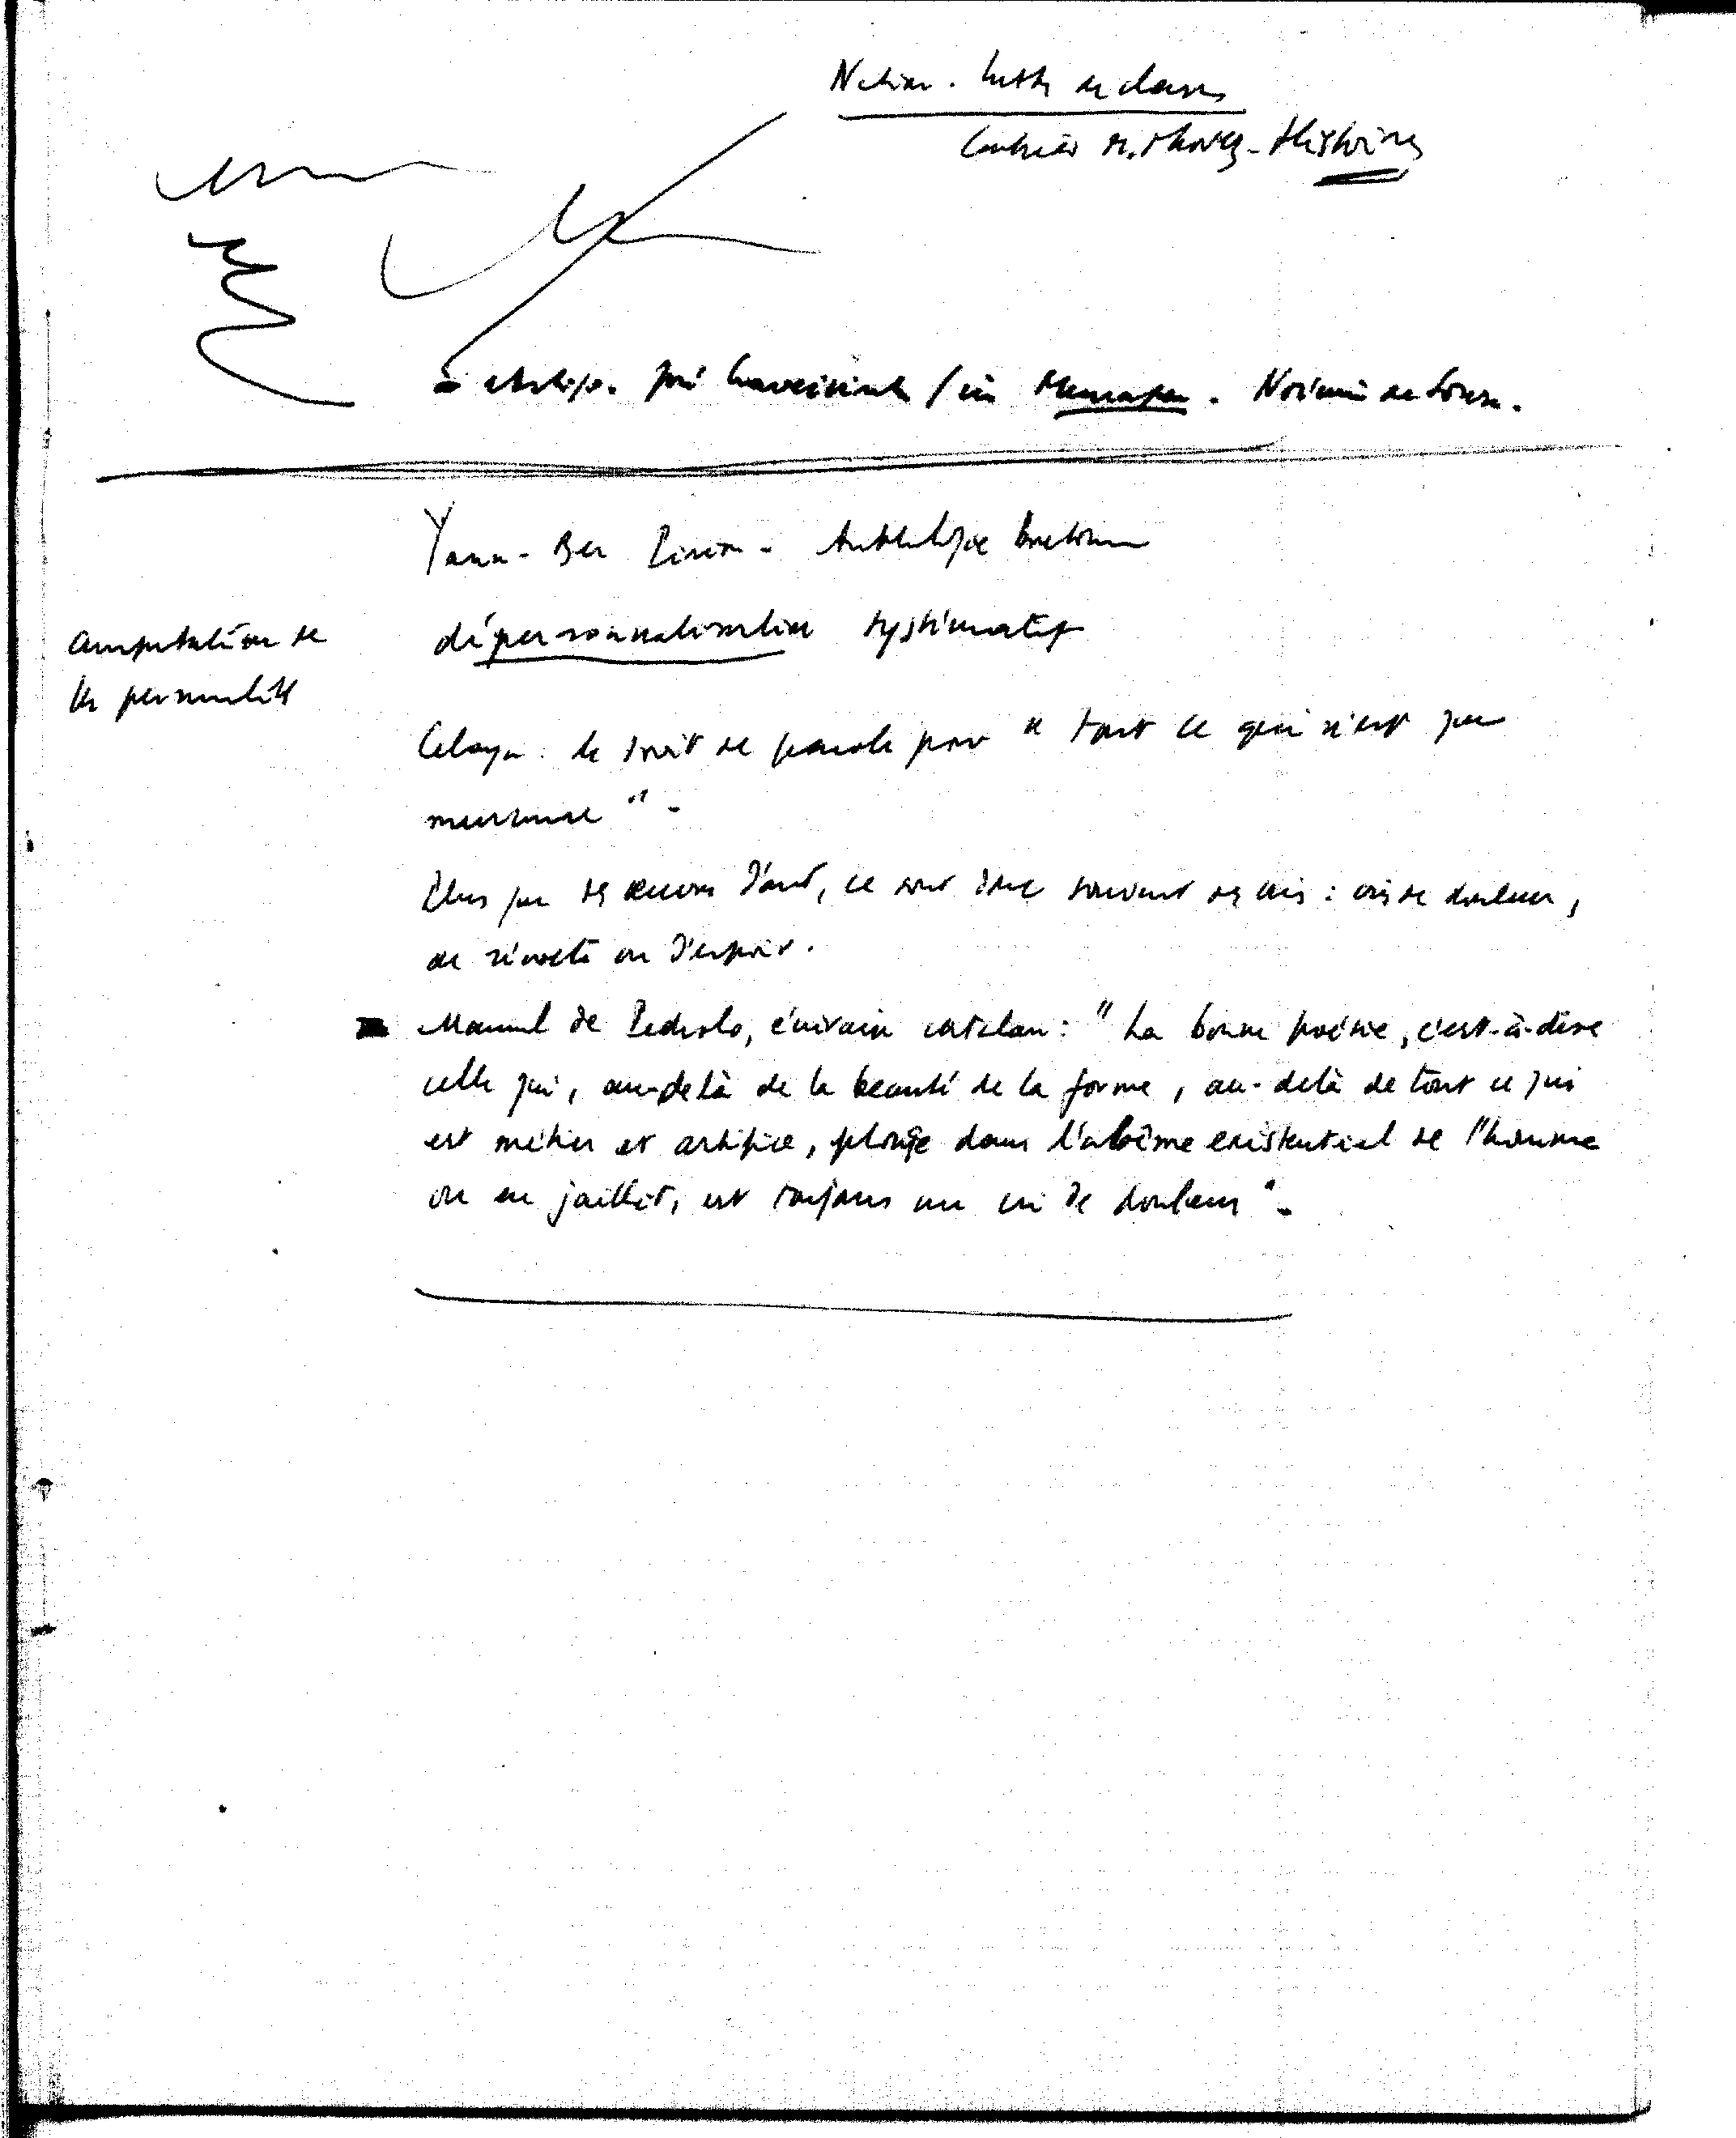 Nation. Lutte de classes
Cahiers M. Thorez - Histoires
José Craveirinha / in . Noémia de Sousa.
Yann-Ber Piriou - Anthologie bretonne
amputation de
la personnalité
dépersonnalisation systématique
Celaya : le droit de parole pour " tout ce qui n'est que
murmure " -
Plus que des œuvres d'art, ce sont donc souvent des cris : cris de douleur,
de révolte ou d'espoir.
Manuel de Pedrolo, écrivain catalan : " La bonne poésie, c'est-à-dire
celle qui, au-delà de la beauté de la forme, au-delà de tout ce qui
est métier et artifice, plonge dans l'abîme existentiel de l'homme
ou en jaillit, est toujours un cri de douleur " -